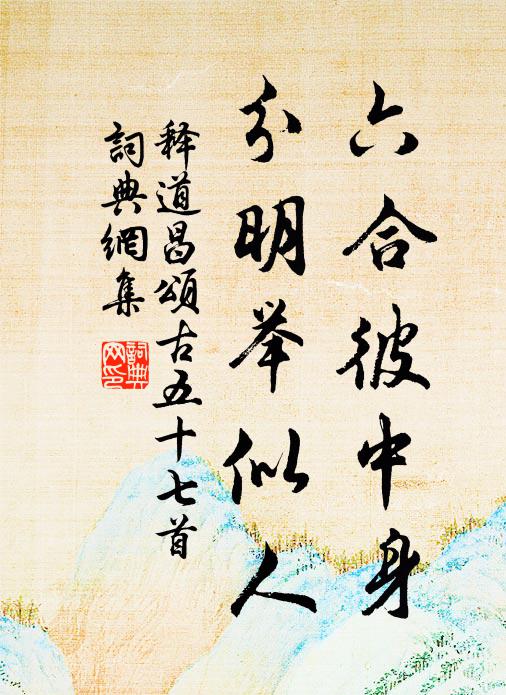 六合彼中身
分明举似人
释道昌頌古五十七首
詞典網集
詞典网印